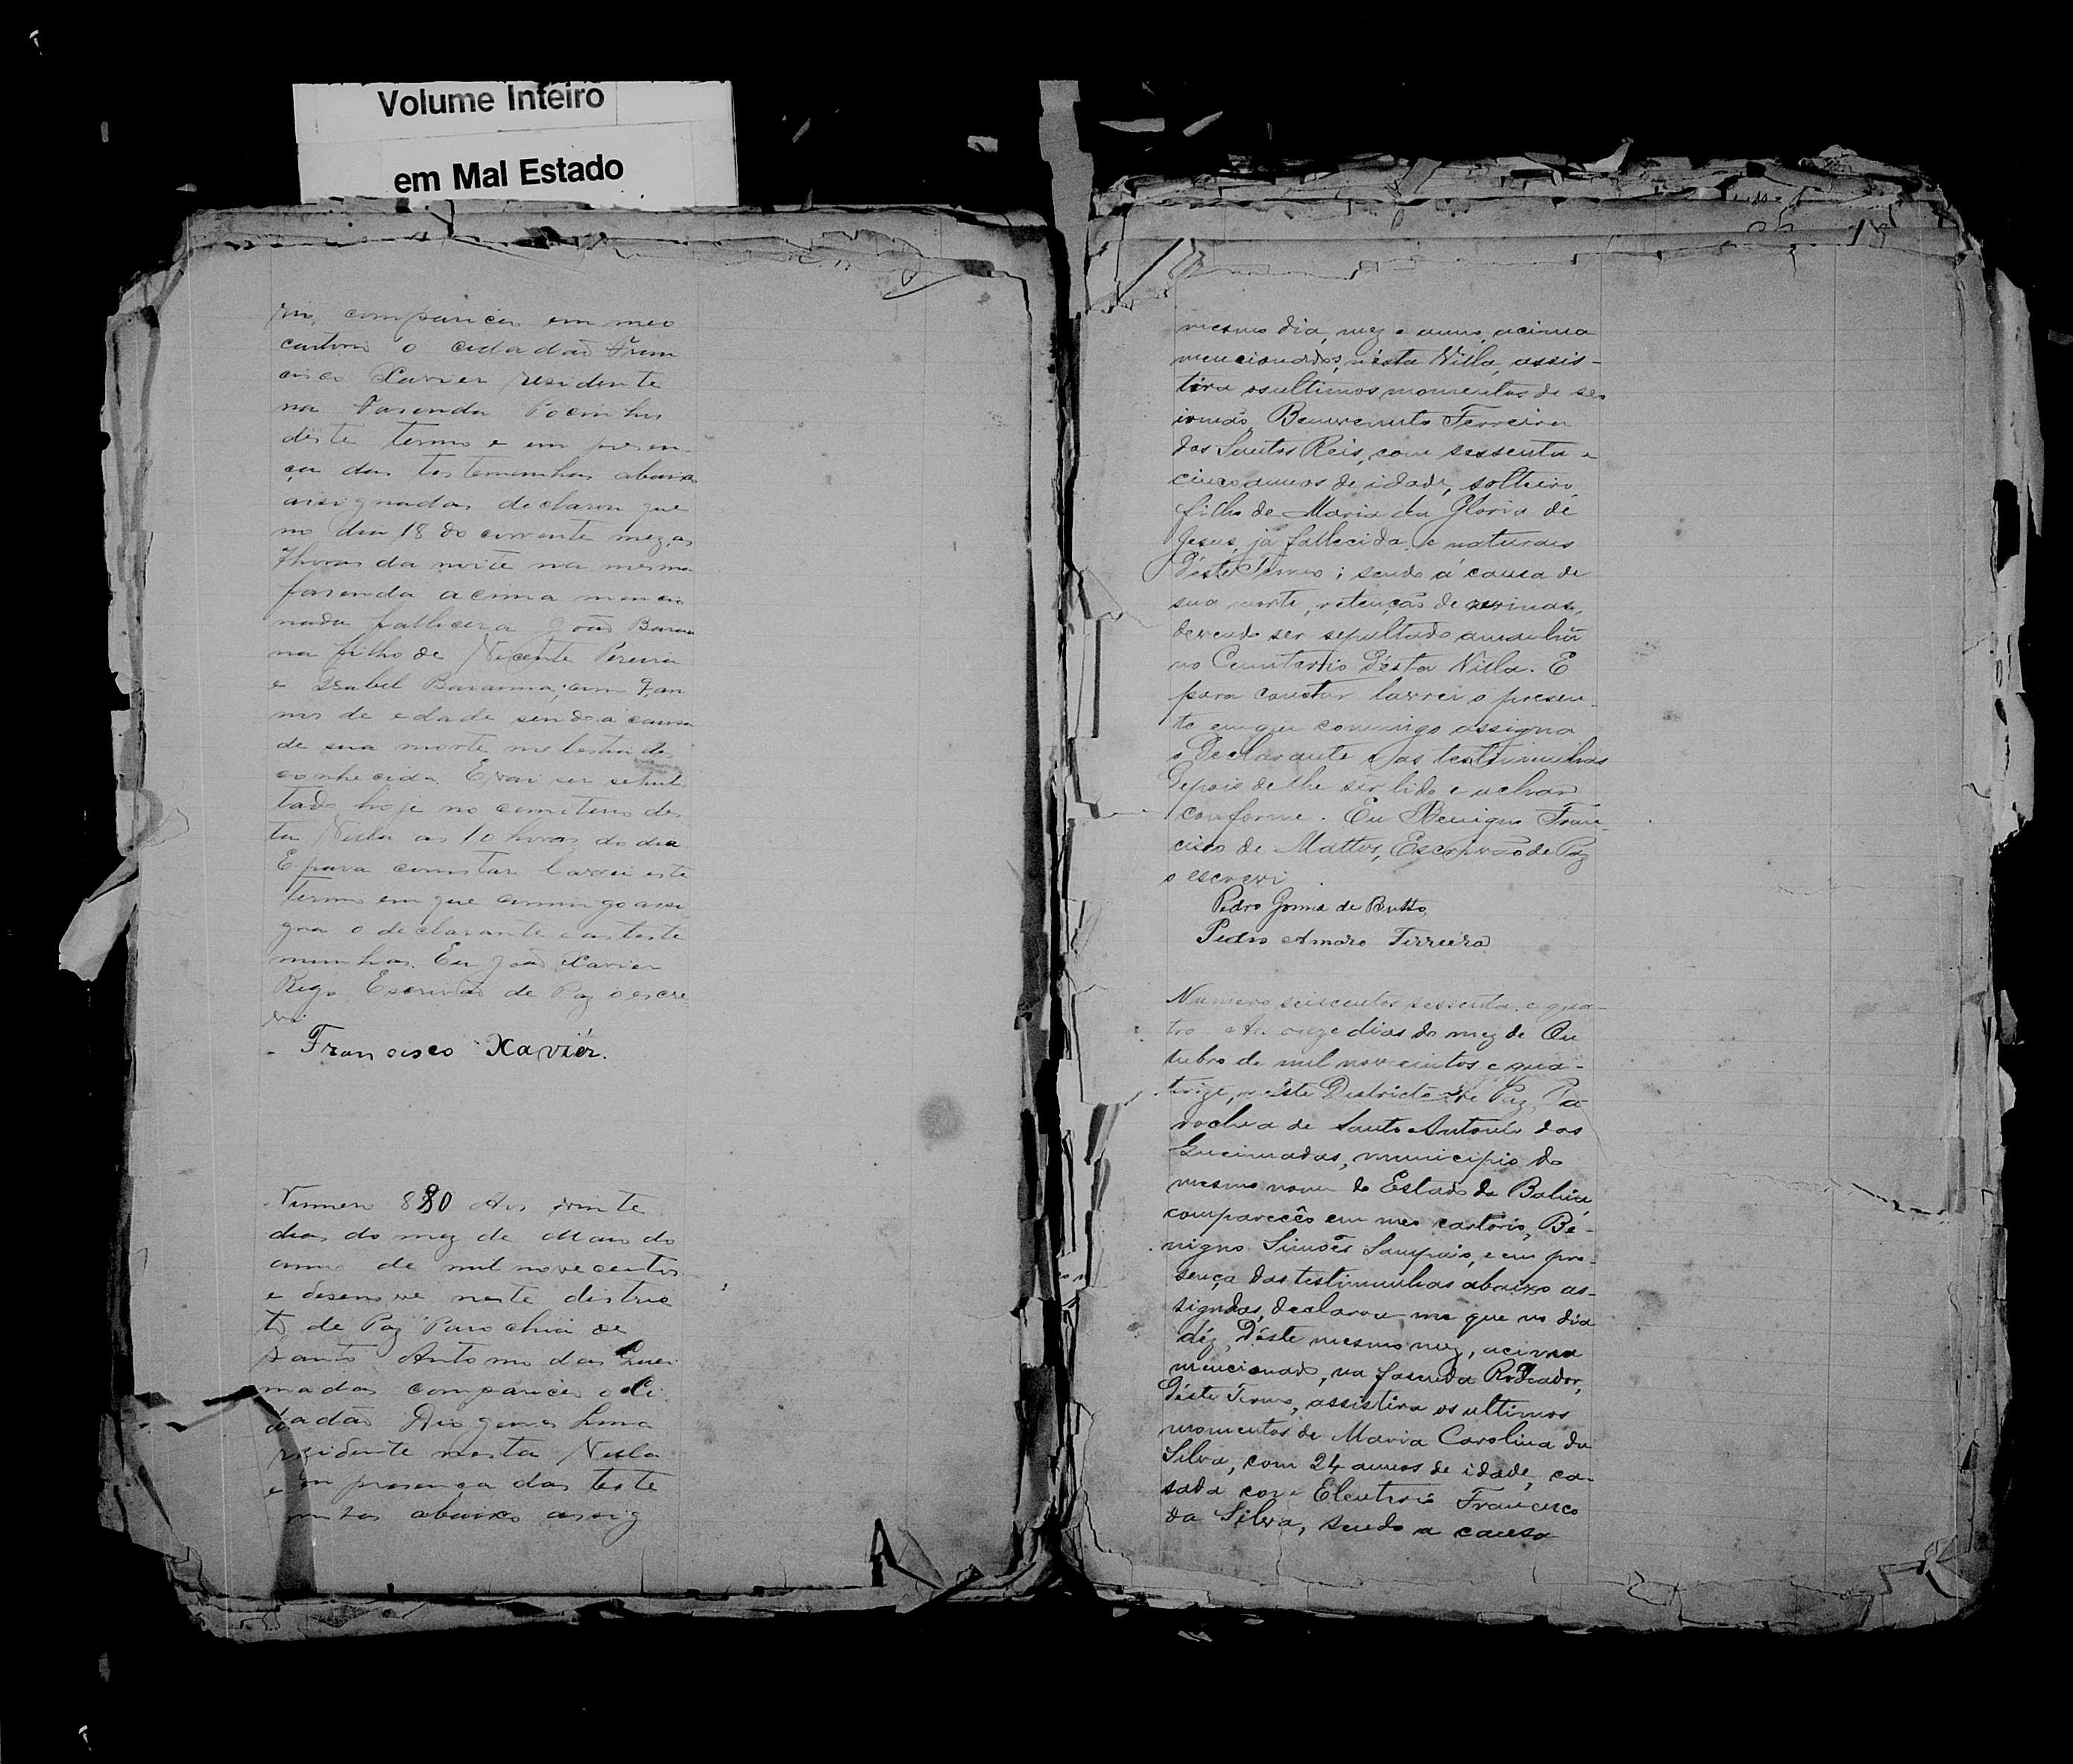 Volume Inteiro
em Mal Estado
rio, compareceu em meo
cartorio o cidadão Fran
cisco Xavier residente
na Fasenda Pocinhos
deste termo e em presen-
ça das testemunhas abaixo
assignadas declarou que
no dia 18 do corrente mez, as
7 horas da noite na mesma
fasenda acima mencio
nada fallecera João Barau
na filho de Vicente Pereira
e Isabel Barauna, com 9 an
nos de edade sendo a causa
de sua morte molestia des
conhecida. E vai ser sepul
tado hoje no cemiterio des
ta Villa as 10 horas do dia.
E para constar lavrei este
termo em que commigo assi
gna o declarante e as teste
munhas. Eu João Xavier
Rego Escrivão de Paz o escre
vi.
Francisco Xavier.
Numero 880 Aos vinte
dias do mez de Maio do
anno de mil novecentos
e desenove neste distric
to de Paz Parochia de
Santo Antonio das Quei
madas compareceu o Ci
dadão Diogenes Lima
residente nesta Villa
e em presença das teste
abaixo assig
13
mesmo dia, mez e anno, acima
mencionados, n'ésta Villa, assis-
tira os ultimos momentos de seo
irmão, Benvenuto Ferreira
dos Santos Reis, com sessenta e
cinco annos de idade, solteiro,
filho de Maria da Gloria de
Jesus, já fallecida, e naturaes
d'éste Termo; sendo á causa de
sua morte, retenção de ourinas,
devendo ser sepultado amanhã
no Cemiterio d'ésta Villa. E
para constar lavrei o presen-
te em que commigo assigna
o Declarante e as testimunhas
depois de lhe ser lido e acharem
conforme. Eu Benigno Fran-
cisco de Mattos, Escrivão de Paz
o escrevi
Pedro Gomes de Britto
Pedro Amaro Ferreira
Numero seiscentos sessenta e qua-
tro. Aos onze dias do mez de Ou
tubro de mil novecentos e qua-
torze, n'éste Districto de Paz, Pa-
rochia de Santo Antonio das
Queimadas, municipio do
mesmo nome do Estado da Bahia
comparecêo em meo cartorio, Be-
nigno Simões Sampaio, e em pre-
sença das testimunhas abaixo as-
signdas, declarou-me que no dia
déz, D'éste mesmo mez, acima
mencionado, na fasenda Rodeador,
D'éste Termo, assistira os ultimos
momentos de Maria Carolina da
Silva, com 24 annos de idade, ca-
sada com Eleuterio Francisco
da Silva, sendo a causa